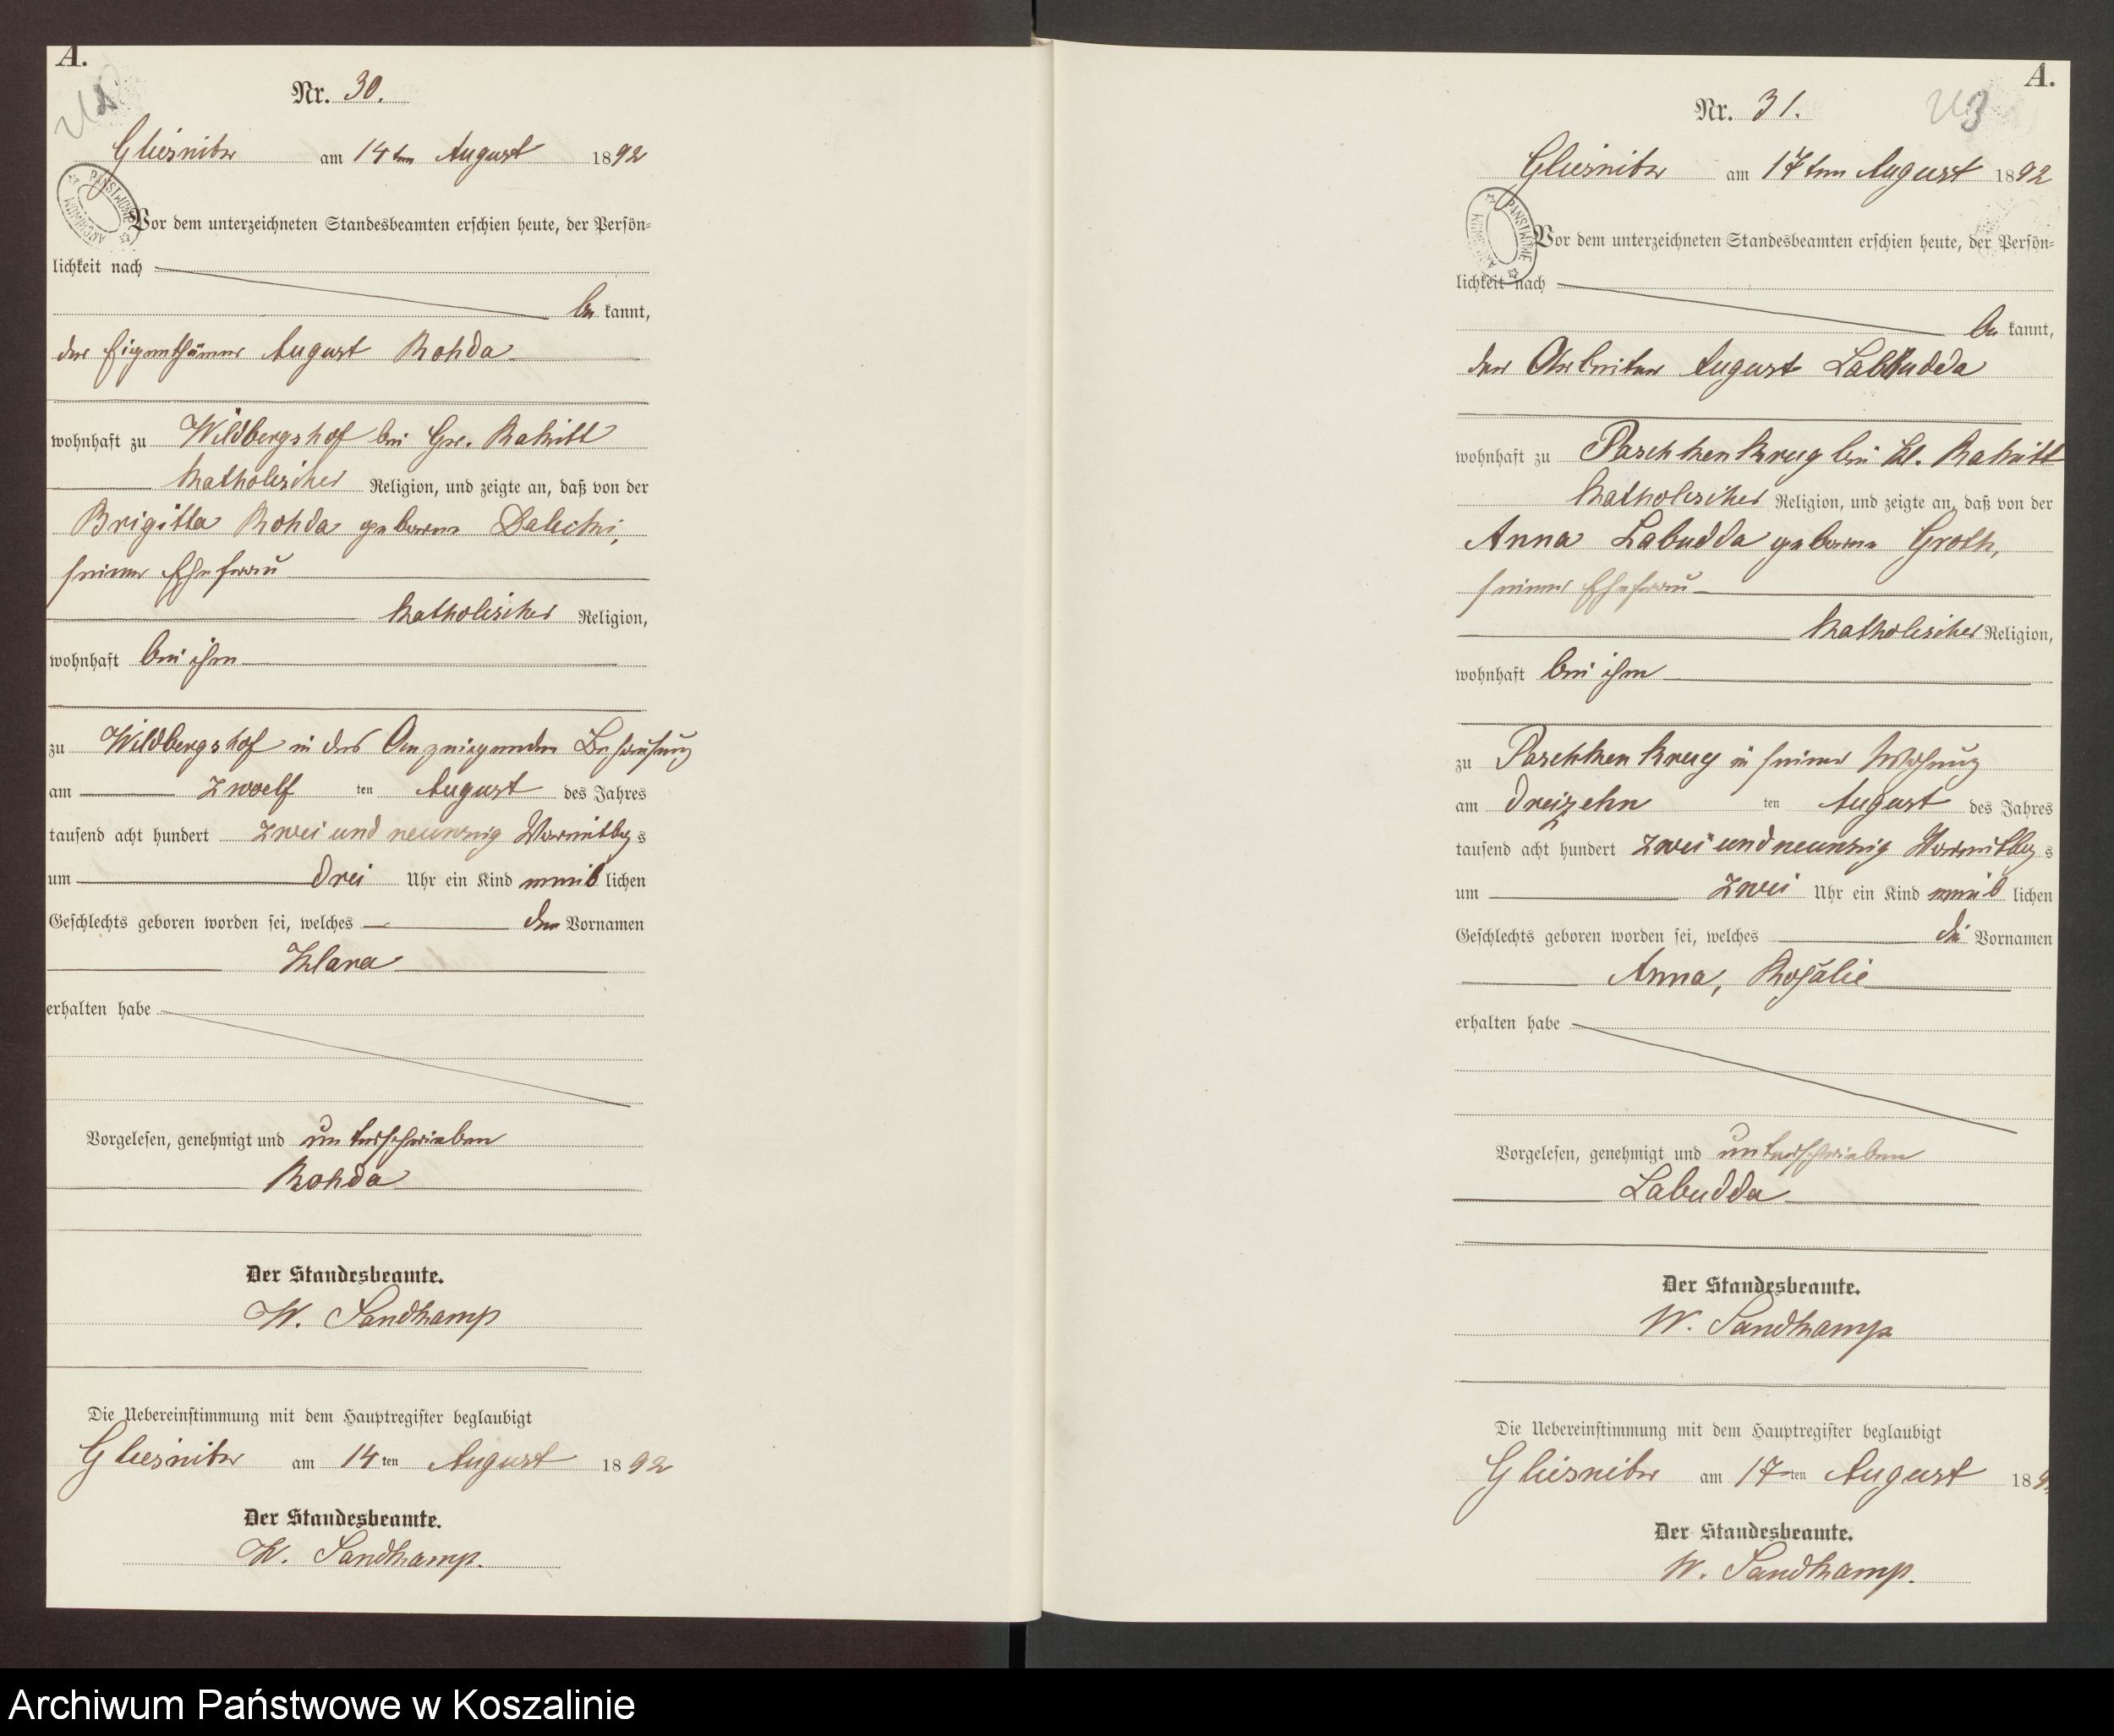 A.
Nr. 30.
Gliesnitz am 14ten August 1892
Vor dem unterzeichneten Standesbeamten erschien heute, der Persön=
lichkeit nach
be kannt,
der Eigenthümer August Rohda
wohnhaft zu Wildbergshof bei Gr. Rakitt
katholischer Religion, und zeigte an, daß von der
Brigitta Rohda geborne
seiner Ehefrau
katholischer Religion,
wohnhaft bei ihm
zu Wildbergshof in des Anzeigenden Behausung
am zwoelf ten August des Jahres
tausend acht hundert zwei und neunzig Vormittags
um drei Uhr ein Kind weiblichen
Geschlechts geboren worden sei, welches den Vornamen
Klara
erhalten habe
Vorgelesen, genehmigt und unterschrieben
Rohda
Der Standesbeamte.
W. Sandkamp
Die Uebereinstimmung mit dem Hauptregister beglaubigt
Gliesnitz am 14ten August 1892
Der Standesbeamte.
W. Sandkamp.
A.
Nr. 31.
Gliesnitz am 17ten August 1892
Vor dem unterzeichneten Standesbeamten erschien heute, der Persön=
lichkeit nach
be kannt,
der Arbeiter August Labudda
wohnhaft zu Paschkenkrug bei Kl. Rakitt
katholischer Religion, und zeigte an, daß von der
Anna Labudda geborne Groth,
seiner Ehefrau
katholischer Religion,
wohnhaft bei ihm
zu Paschkenkrug in seiner Wohnung
am dreizehn ten August des Jahres
tausend acht hundert zwei und neunzig Vormittags
um zwei Uhr ein Kind weiblichen
Geschlechts geboren worden sei, welches die Vornamen
Anna, Rosalie
erhalten habe
Vorgelesen, genehmigt und unterschrieben
Labudda
Der Standesbeamte.
W. Sandkamp
Die Uebereinstimmung mit dem Hauptregister beglaubigt
Gliesnitz am 17ten August 189
Der Standesbeamte.
W. Sandkamp.
Archiwum Państwowe w Koszalinie